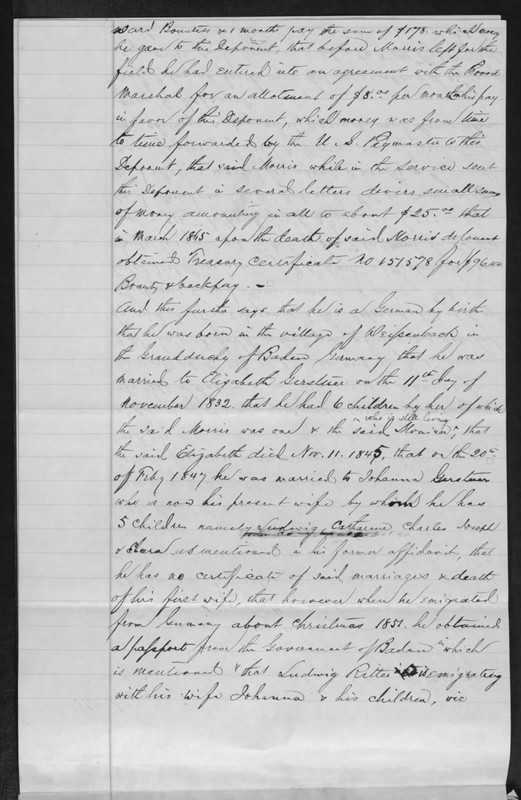 ward Bounties & 1 months pay the sum of $178. which money
he gave to this Deponent, that before Morris left for the
field he had entered into an agreement with the Provost
Marshal for an allotment of $8.00 per month his pay
in favor of this Deponent, which money was from time
to time forwarded by the U. S. Paymaster to this
Deponent, that said Morris while in the service sent
this Deponent in several letters divers small sums
of money amounting in all to about $25.00 that
in March 1865 upon the death of said Morris deponent
obtained Treasury Certificate No 151578 for $96
Bounty & backpay. —
And this further says, that he is a German by birth
that he was born in the village of Weisenbach in
the Grandduchy of Baden Germany that he was
married to Elizabeth Gerstner on the 11th day of
November 1832. that he had 6 children by her of which
the said Morris was one & the said who is still living, that
the said Elizabeth died Nov. 11. 1845, that on the 20th
of Feby 1847 he was married to Johanna Gerstner
who is now his present wife by whom he has
5 children namely Ludwig, Catharine, Charles Joseph
& Clara as mentioned in his former affidavit, that
he has no certificate of said marriages & death
of his first wife, that however when he emigrated
from Germany about Christmas 1851. he obtained
a passport from the Government of Baden "which
is mentioned & that Ludwig Ritter is emigrating
with his wife Johanna & his children, viz